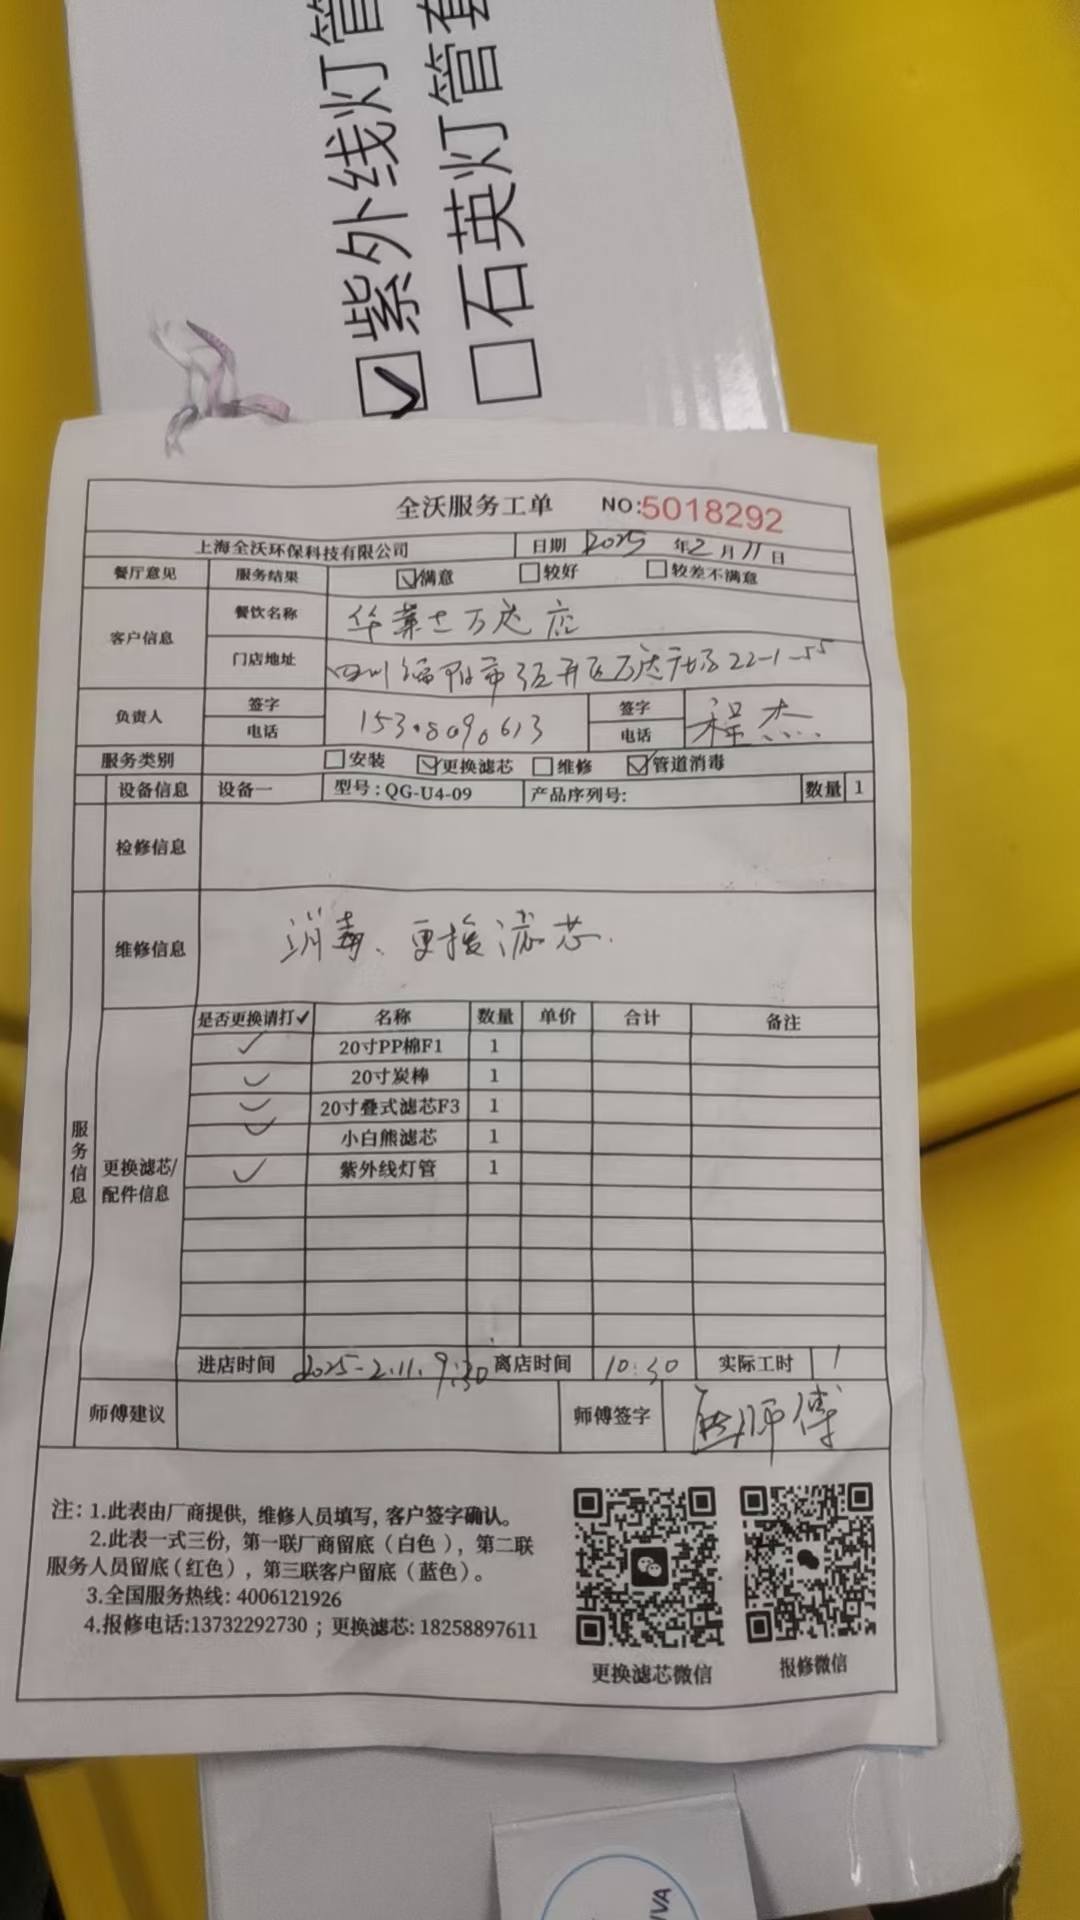 紫外线灯管
石英灯管套
全沃服务工单 NO:5018292
上海全沃环保科技有限公司 日期 2025 年 2 月 11 日
餐厅意见 服务结果 满意 较好 较差不满意
客户信息 餐饮名称 华莱士万达店
门店地址 四川绵阳市 开区万达广场22-1-55
负责人 签字 电话 签字 电话 程杰
服务类别 安装 更换滤芯 维修 管道消毒
设备信息 设备一 型号:QG-U4-09 产品序列号: 数量 1
检修信息
维修信息 消毒、更换滤芯.
服务信息
更换滤芯/配件信息
是否更换请打✓ 名称 数量 单价 合计 备注
✓ 20寸PP棉F1 1
✓ 20寸炭棒 1
✓ 20寸叠式滤芯F3 1
✓ 小白熊滤芯 1
✓ 紫外线灯管 1
进店时间 2025-2.11.9:30 离店时间 10:30 实际工时 1
师傅建议 师傅签字 师傅
注:1.此表由厂商提供,维修人员填写,客户签字确认。
2.此表一式三份,第一联厂商留底(白色),第二联
服务人员留底(红色),第三联客户留底(蓝色)。
3.全国服务热线:4006121926
4.报修电话:13732292730;更换滤芯:18258897611
更换滤芯微信 报修微信